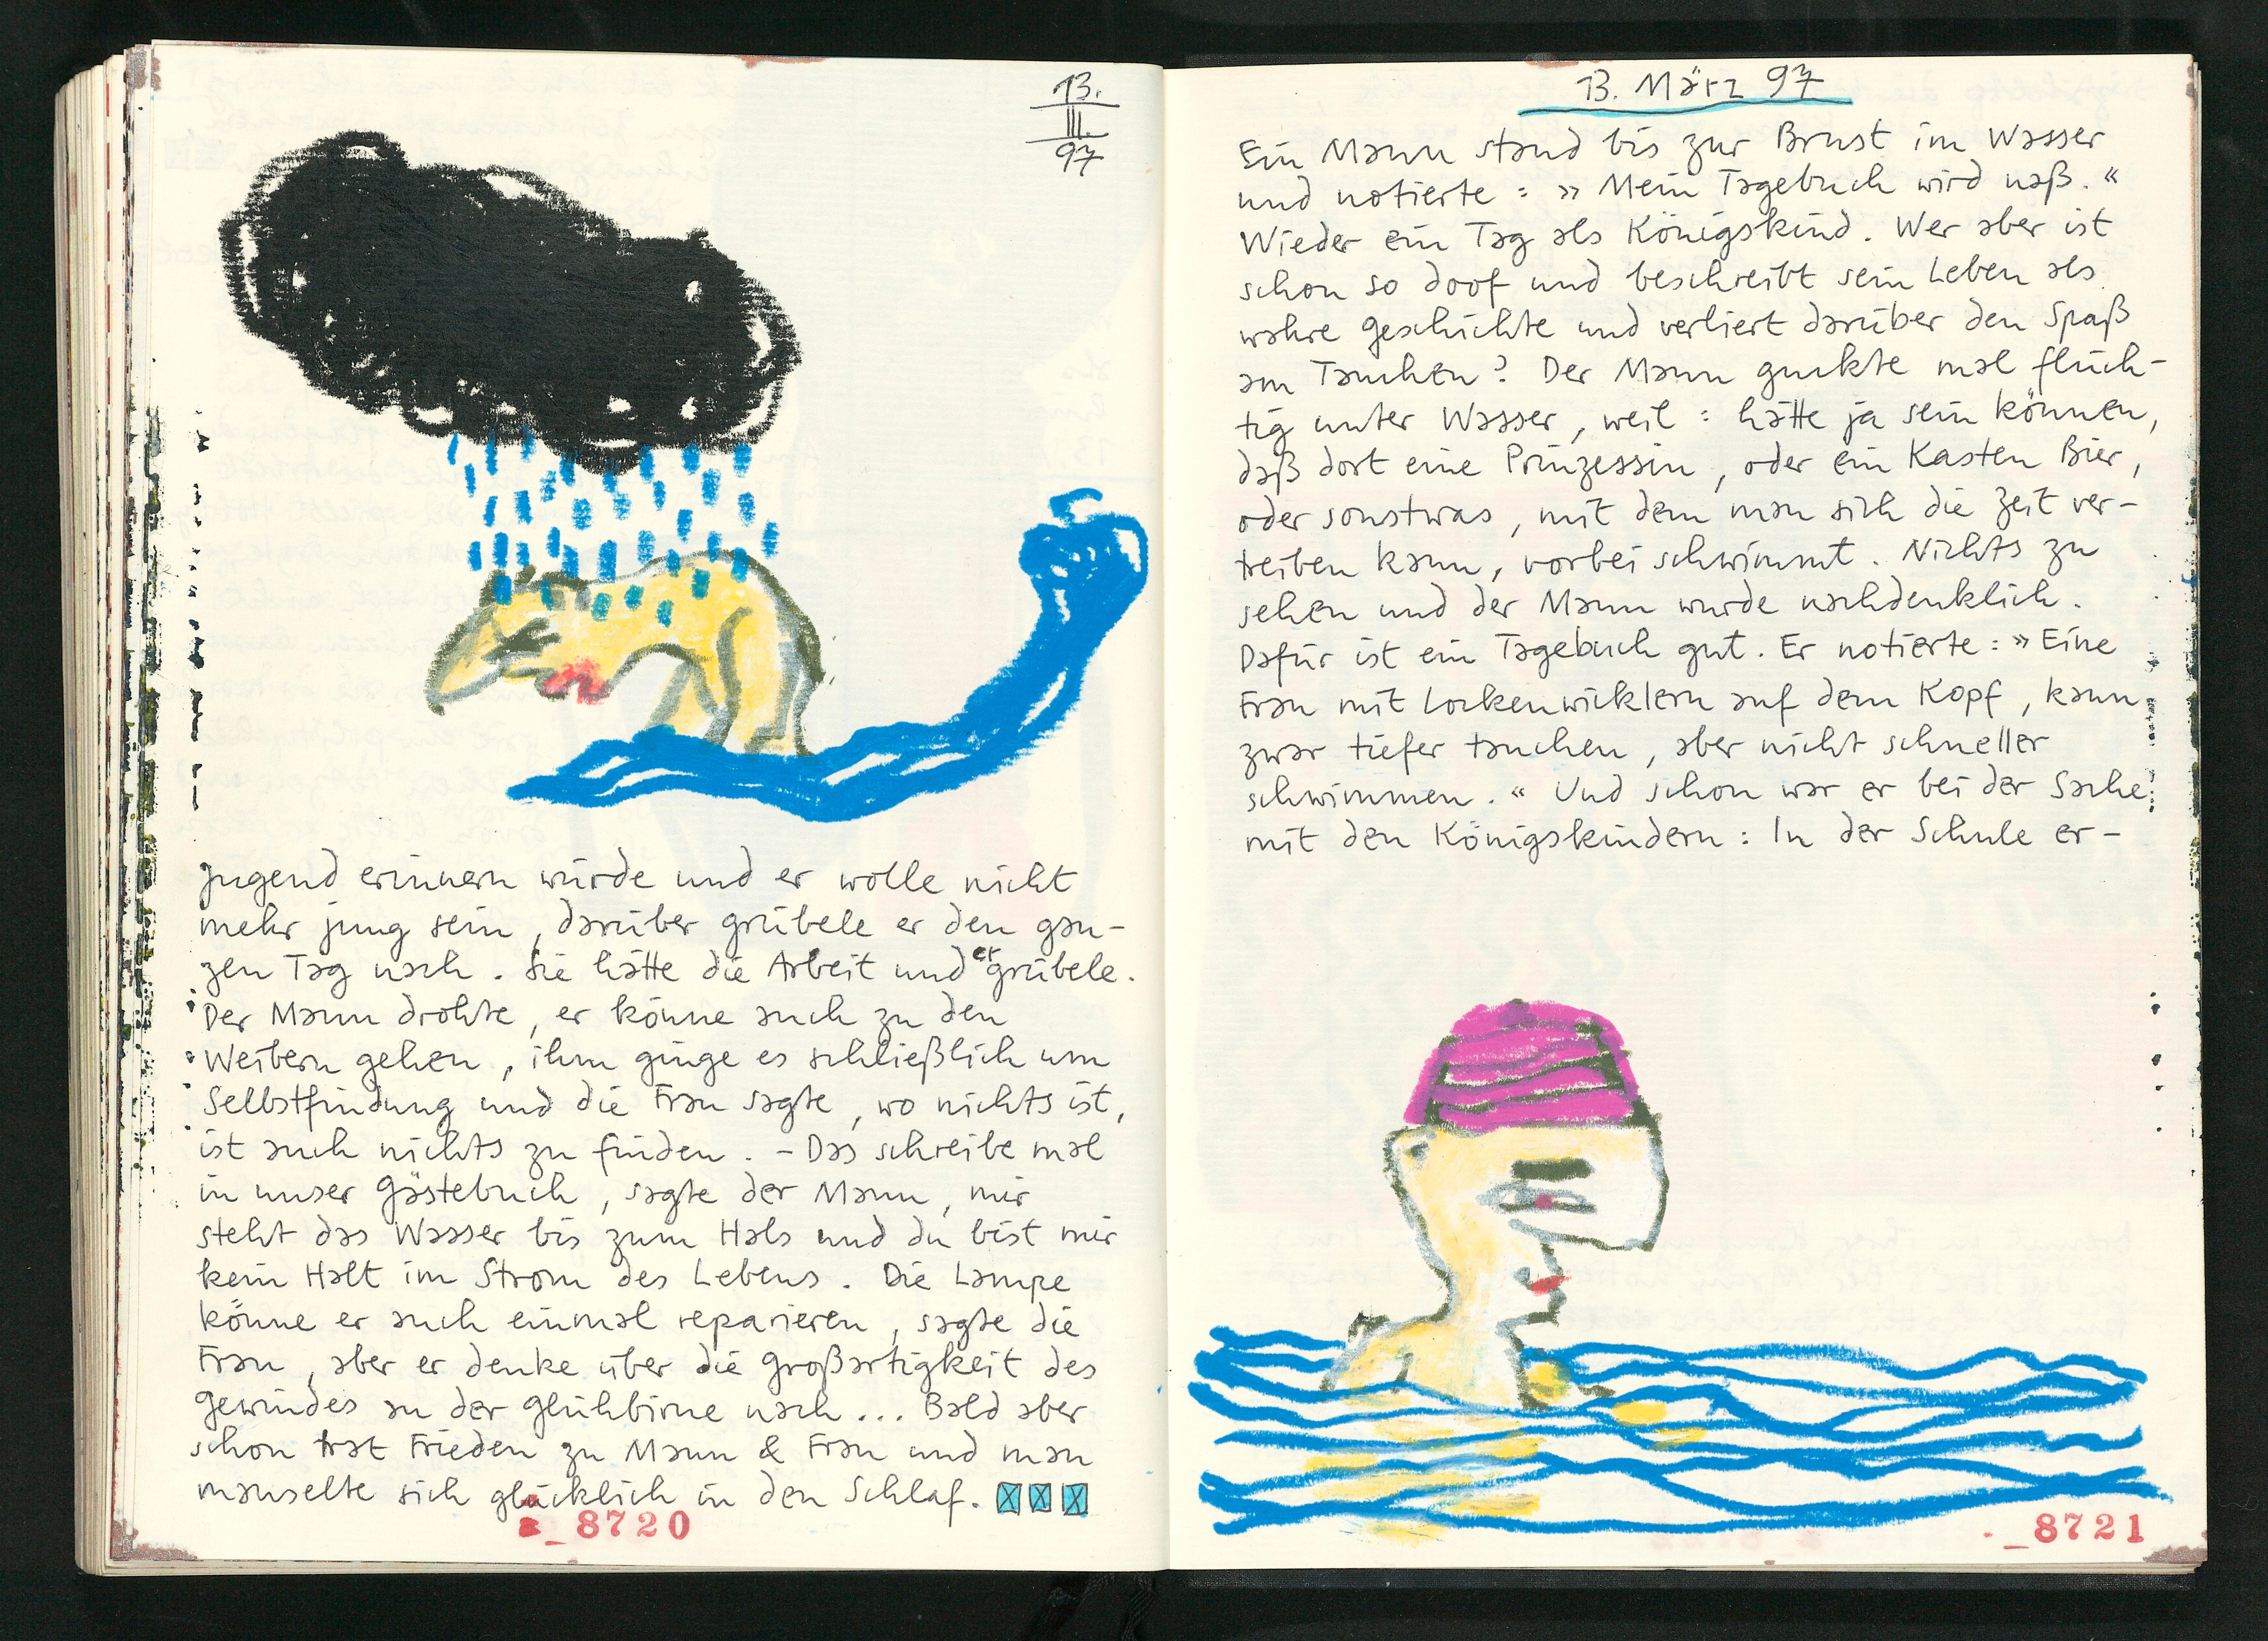 13.
III.
97
Jugend erinnern würde und er wolle nicht
mehr jung sein, darüber grübele er den gan-
zen Tag nach. Sie hätte die Arbeit und er grübele.
Der Mann drohte, er könne auch zu den
Weibern gehen, ihm ginge es schließlich um
Selbstfindung und die Frau sagte, wo nichts ist,
ist auch nichts zu finden. – Das schreibe mal
in unser Gästebuch, sagte der Mann, mir
steht das Wasser bis zum Hals und du bist mir
kein Halt im Strom des Lebens. Die Lampe
könne er auch einmal reparieren, sagte die
Frau, aber er denke über die Großartigkeit des
Gewindes an der Glühbirne nach... Bald aber
schon trat Frieden zu Mann & Frau und man
mauselte sich glücklich in den Schlaf.
_8720
13. März 97
Ein Mann stand bis zur Brust im Wasser
und notierte: »Mein Tagebuch wird naß.«
Wieder ein Tag als Königskind. Wer aber ist
schon so doof und beschreibt sein Leben als
wahre Geschichte und verliert darüber den Spaß
am Tauchen? Der Mann guckte mal flüch-
tig unter Wasser, weil: hätte ja sein können,
daß dort eine Prinzessin, oder ein Kasten Bier,
oder sonstwas, mit dem man sich die Zeit ver-
treiben kann, vorbei schwimmt. Nichts zu
sehen und der Mann wurde nachdenklich.
Dafür ist ein Tagebuch gut. Er notierte: »Eine
Frau mit Lockenwicklern auf dem Kopf, kann
zwar tiefer tauchen, aber nicht schneller
schwimmen.« Und schon war er bei der Sache
mit den Königskindern: In der Schule er-
_8721